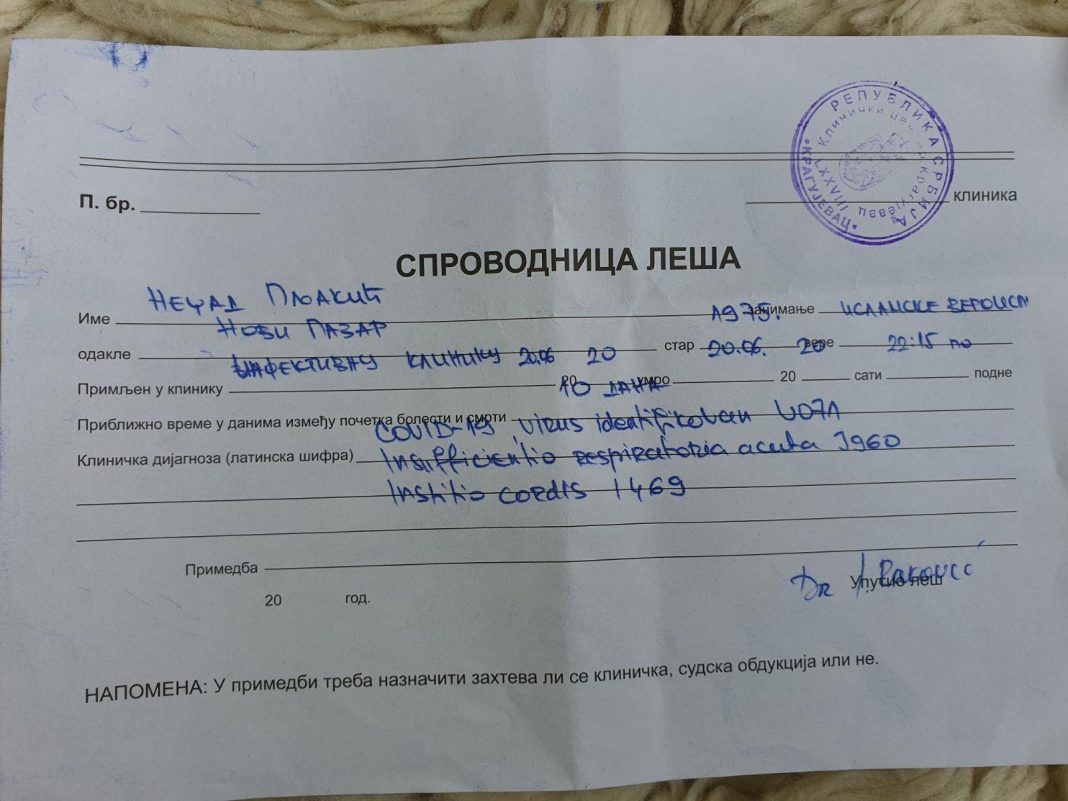 РЕПУБЛИКА СРБИЈА
Клинички Крагујевац
КРАГУЈЕВАЦ
LXXVIII
П. бр.
клиника
СПРОВОДНИЦА ЛЕША
Име Неџад Пљакић 1975. занимање исламске
одакле Нови Пазар стар 20.06. 20 вере 22:15 по
Примљен у клинику Инфективну клинику 20.06 20 20 умро 20 сати подне
Приближно време у данима између почетка болести и смрти 10 дана
Клиничка дијагноза (латинска шифра) COVID-19, virus identifikovan U071
Insufficientio respiratoria acuta J960
Institio cordis I469
Примедба
20 год.
Dr Упутио леш
НАПОМЕНА: У примедби треба назначити захтева ли се клиничка, судска обдукција или не.